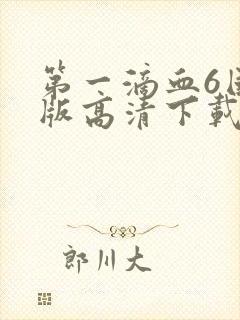 第一滴血6国
版高清下载
郎川大